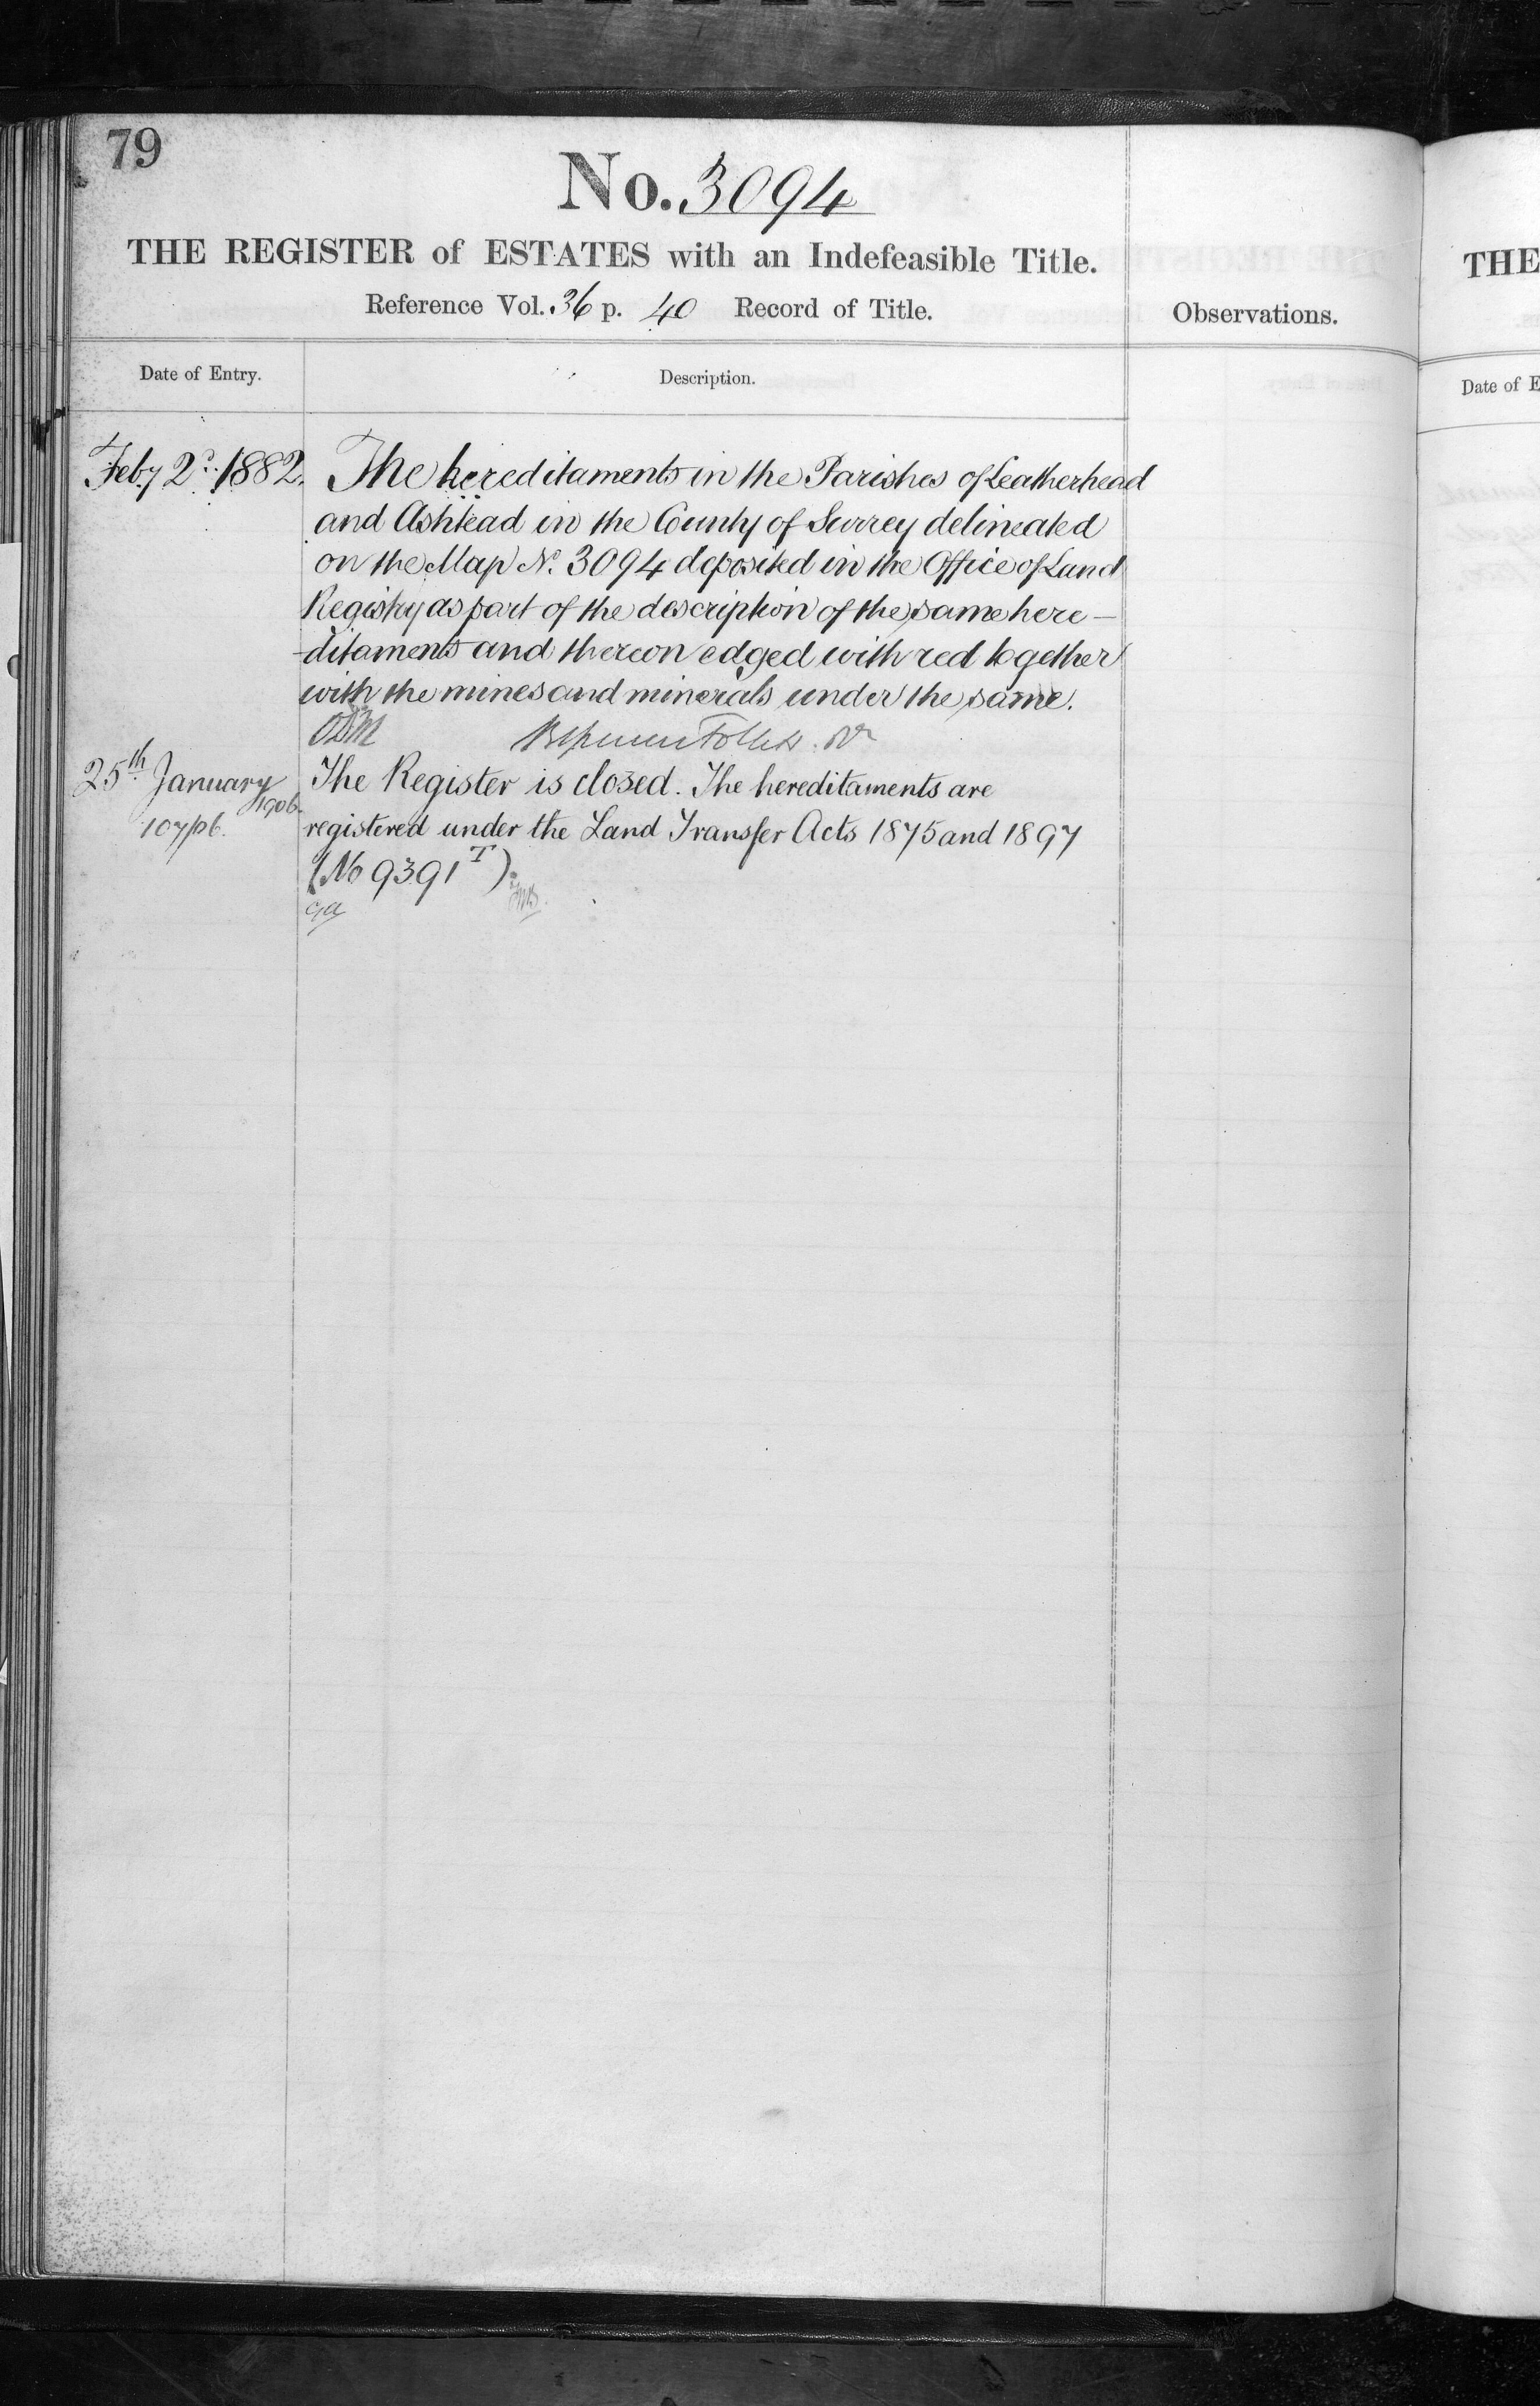 79
No. 3094
THE REGISTER of ESTATES with an Indefeasible Title.
Reference Vol. 36 p. 40 Record of Title.
Observations.
Date of Entry.
Description.
Feby 2d. 1882.
The hereditaments in the Parishes of Leatherhead
and Ashtead in the County of Surrey delineated
on the Map No. 3094 deposited in the Office of Land
Registry as part of the description of the same here-
-ditaments and thereon edged with red together
with the mines and minerals under the same.
25th January
1906.
107/06.
The Register is closed. The hereditaments are
registered under the Land Transfer Acts 1875 and 1897
(No 9391T).
THE
Date of E